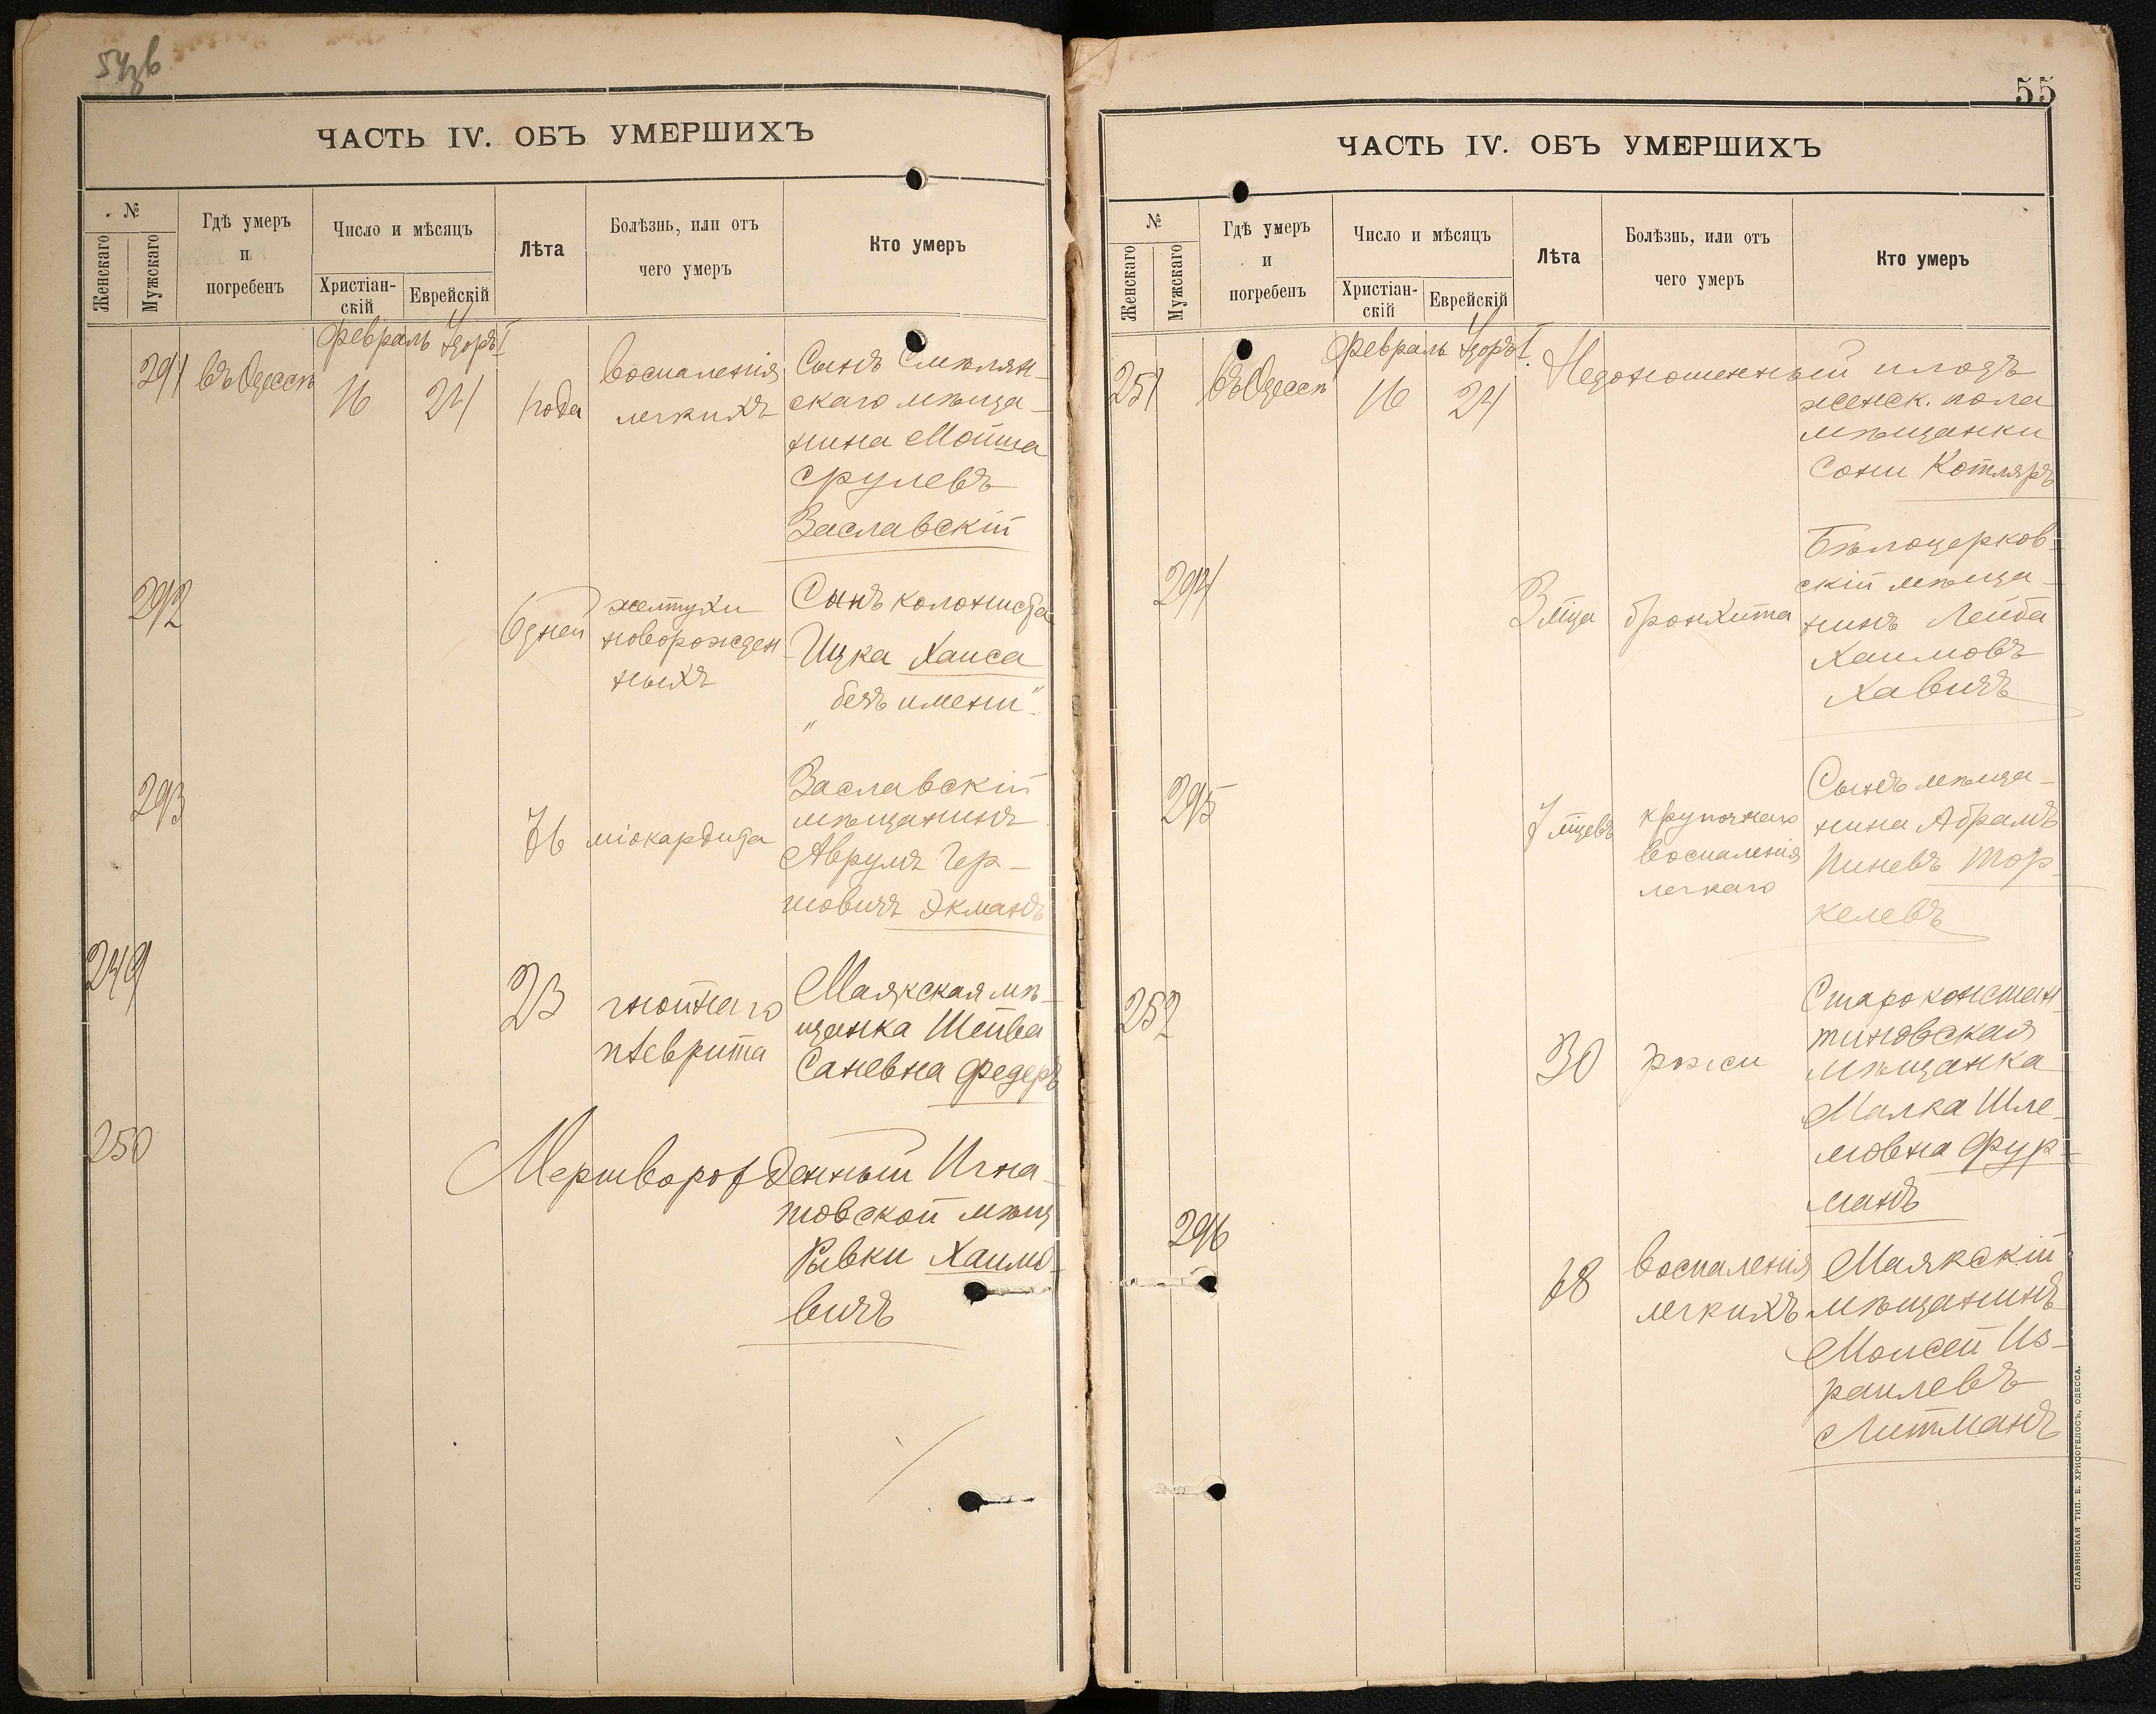 54зв
ЧАСТЬ IV. ОБЪ УМЕРШИХЪ
№
Женскаго
Мужскаго
Гдѣ умеръ
и
погребенъ
Число и мѣсяцъ
Христіан-
скій
Еврейскій
Лѣта
Болѣзнь, или отъ
чего умеръ
Кто умеръ
Февраль Адоръ I
291 въ Одессѣ 16 24 1 года
воспаленія
легкихъ
Сынъ Смѣлян-
скаго мѣща-
нина Мойша
Срулевъ
Заславскій
292
6 дней
желтухи
новорожден
ныхъ
Сынъ колониста
Ицка Хаиса
"безъ имени"
293
76 міокардита
Заславскій
мѣщанинъ
Аврумъ Гер-
шовичъ Экманъ
249
23
гнойнаго
плеврита
Маякская мѣ-
щанка Шейва
Саневна Федеръ
250
Мертворожденный Игна-
товской мѣщ
Рывки Хаимо-
вичъ
55
ЧАСТЬ IV. ОБЪ УМЕРШИХЪ
№
Женскаго
Мужскаго
Гдѣ умеръ
и
погребенъ
Число и мѣсяцъ
Христіан-
скій
Еврейскій
Лѣта
Болѣзнь, или отъ
чего умеръ
Кто умеръ
Февраль Адоръ I
251 въ Одессѣ 16 24
Недоношенный плодъ
женск. пола
мѣщанки
Сони Котляръ
294
3 мѣца бронхита
Бѣлоцерков-
скій мѣща-
нинъ Лейба
Хаимовъ
Хавичъ
295
7 мѣцевъ
крупознаго
воспаленія
легкаго
Сынъ мѣща-
нина Абрамъ
Пиневъ Тор-
келевъ
252
30 рожи
Староконстан-
тиновская
мѣщанка
Малка Шле-
мовна Фур-
манъ
296
68
воспаленія
легкихъ
Маякскій
мѣщанинъ
Моисей Из-
раилевъ
Литманъ
СЛАВЯНСКАЯ ТИП. Е. ХРИСОГЕЛОСЪ, ОДЕССА.